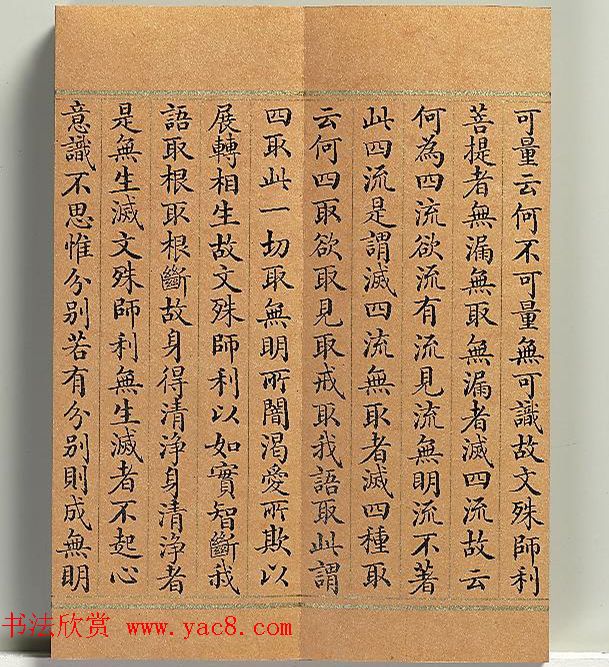 可量云何不可量無可識故文殊師利
菩提者無漏無取無漏者滅四流故云
何為四流欲流有流見流無明流不著
此四流是謂滅四流無取者滅四種取
云何四取欲取見取戒取我語取此謂
四取此一切取無明所闇渴愛所欺以
展轉相生故文殊師利以如實智斷我
語取根取根斷故身得清淨身清淨者
是無生滅文殊師利無生滅者不起心
意識不思惟分別若有分別則成無明
书法欣赏 www.yac8.com